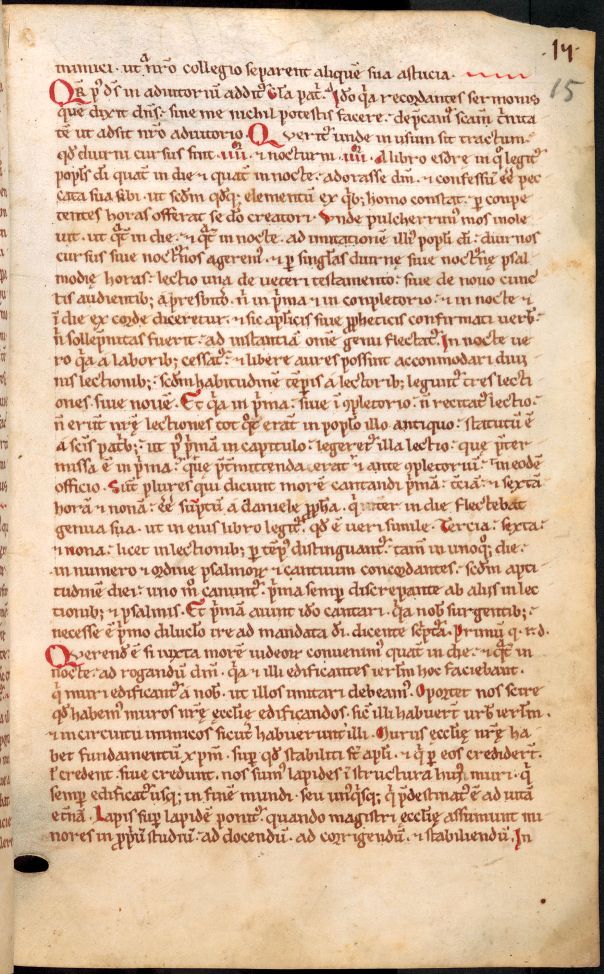 14
15
inimici · ut q̃ nr̃o collegio separent aliquẽ sua astucia ·
QR̃ p᷒ d̃s in adiutoriũ additᷣ Gl̃a patᷣ · Ido q̃a recordantes sermonis
quẽ dixit dñs · sine me nichil potestis facere · dep̃camᷣ sc̃am t̃nita
tẽ ut adsit nr̃o adiutorio · Queritᷣ unde in usum sit tractum ·
qd̃ diurni cursus sint · iiii · ⁊ nocturni · iiii · A libro esdre in q̃ legitᷣ
popl̃s di quat̃ in die ⁊ quat̃ in nocte · adorasse dm̃ · ⁊ confessũ ẽẽ pec
cata sua sibi · ut scd̃m qd̃q; elementũ ex qb; homo constat · p conpe
tentes horas offerat se do creatori · Unde pulcherrim᷒ mos inole
uit · ut qt̃ in die · ⁊ qt̃ in nocte · ad imitationẽ illi᷒ popl̃i di · diurnos
cursus siue noct̃nos agerem᷒ · ⁊ p singl̃as diurnę siue noct̃nę psal
modię horas · lectio una de ueteri testamento · siue de nouo cunc
tis audientib; a presbit̃o · ñ in p̃ma ⁊ in conpletorio · ⁊ in nocte ⁊
ĩ die ex corde diceretur · ⁊ sic apl̃icis siue ꝓpheticis confirmati uerb᷒ ·
ñ sollẽpnitas fuerit · ad instantiã om̃e genu flectatᷣ · In nocte ue
ro q̃a a laborib; cessatᷣ · ⁊ libere aures possint accommodari diui
nis lectionib; · scd̃m habitudinẽ tẽpis a lectorib; leguntᷣ tres lecti
ones siue nouẽ · Et q̃a in p̃ma · siue ĩ ꝯpletorio · ñ recitatᷣ lectio ·
ñ erũt nr̃ę lectiones tot qt̃ erãt in poplo illo antiquo · statutũ ẽ
a sc̃is patb; · ut p᷒ p̃mã in capitulo · legeretᷣ illa lectio · que p̃ter
missa ẽ in p̃ma · que p̃tmittenda erat ⁊ ante ꝯpletoriũ · in eodẽ
officio · Sũt plures qui dicunt morẽ cantandi p̃mã · tc̃iã · ⁊ sextã
horã ⁊ nonã · ẽẽ sũptũ a daniele ꝓpha · q̃ inter in die flectebat
genua sua · ut in eius libro legitᷣ · qd̃ ẽ ueri simile · Tercia · sexta ·
⁊ nona · licet in lectionib; p tẽp᷒ distinguantᷣ · tam̃ in unoq̃q; die ·
in numero ⁊ ordine psalmorꝝ ⁊ canticum concordantes · scd̃m apti
tudinẽ diei · uno m̃ canuntᷣ · p̃ma semp discrepante ab aliis in lec
tionib; ⁊ psalmis · Et p̃mã aiunt ido cantari · q̃a nob᷒ surgentib; ·
necesse ẽ p̃mo diluclo ire ad mandata di · dicente sc̃pt̃a · Primũ q · r · d ·
Querend᷒ ẽ si iuxta morẽ iudeorꝝ conuenim᷒ quat̃ in die · ⁊ qt̃ in
nocte · ad rogandũ dm̃ · q̃a ⁊ illi edificantes ierl̃m hoc faciebant ·
q̃ muri edificantᷣ a nob᷒ · ut illos imitari debeam᷒ · Oportet nos scire
qd̃ habem᷒ muros nr̃ę ęccl̃ię edificandos · sic᷒ illi habuert̃ urb᷒ ierl̃m ·
⁊ in circuitu inimicos sicut habuerunt illi · Murus ęccl̃ię nr̃ę ha
bet fundamentũ xp̃m · sup qd̃ stabiliti st̃ apl̃i · ⁊ q̃ p eos credidert̃ ·
ł credent · siue credunt · nos sum᷒ lapides ĩ structura hui᷒ muri · q̃
semp edificatᷣ usq; in finẽ mundi · seu un᷒q̃sq; q̃ p̃destinat᷒ ẽ ad uitã
et̃nã · Lapis sup lapidẽ ponitᷣ · quando magistri ęccl̃ię assumunt mi
nores in ꝓpũ studiũ · ad docendũ · ad corrigendũ · ⁊ stabiliendũ · In